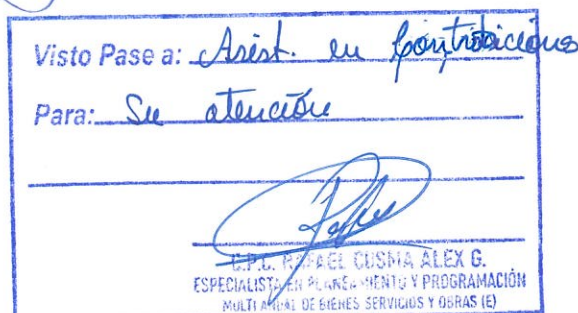 Visto Pase a: Asist. en Contrataciones
Para: Su atención
C.P.C. RAFAEL CUSMA ALEX G.
ESPECIALISTA EN PLANEAMIENTO Y PROGRAMACIÓN
MULTI ANUAL DE BIENES SERVICIOS Y OBRAS (E)